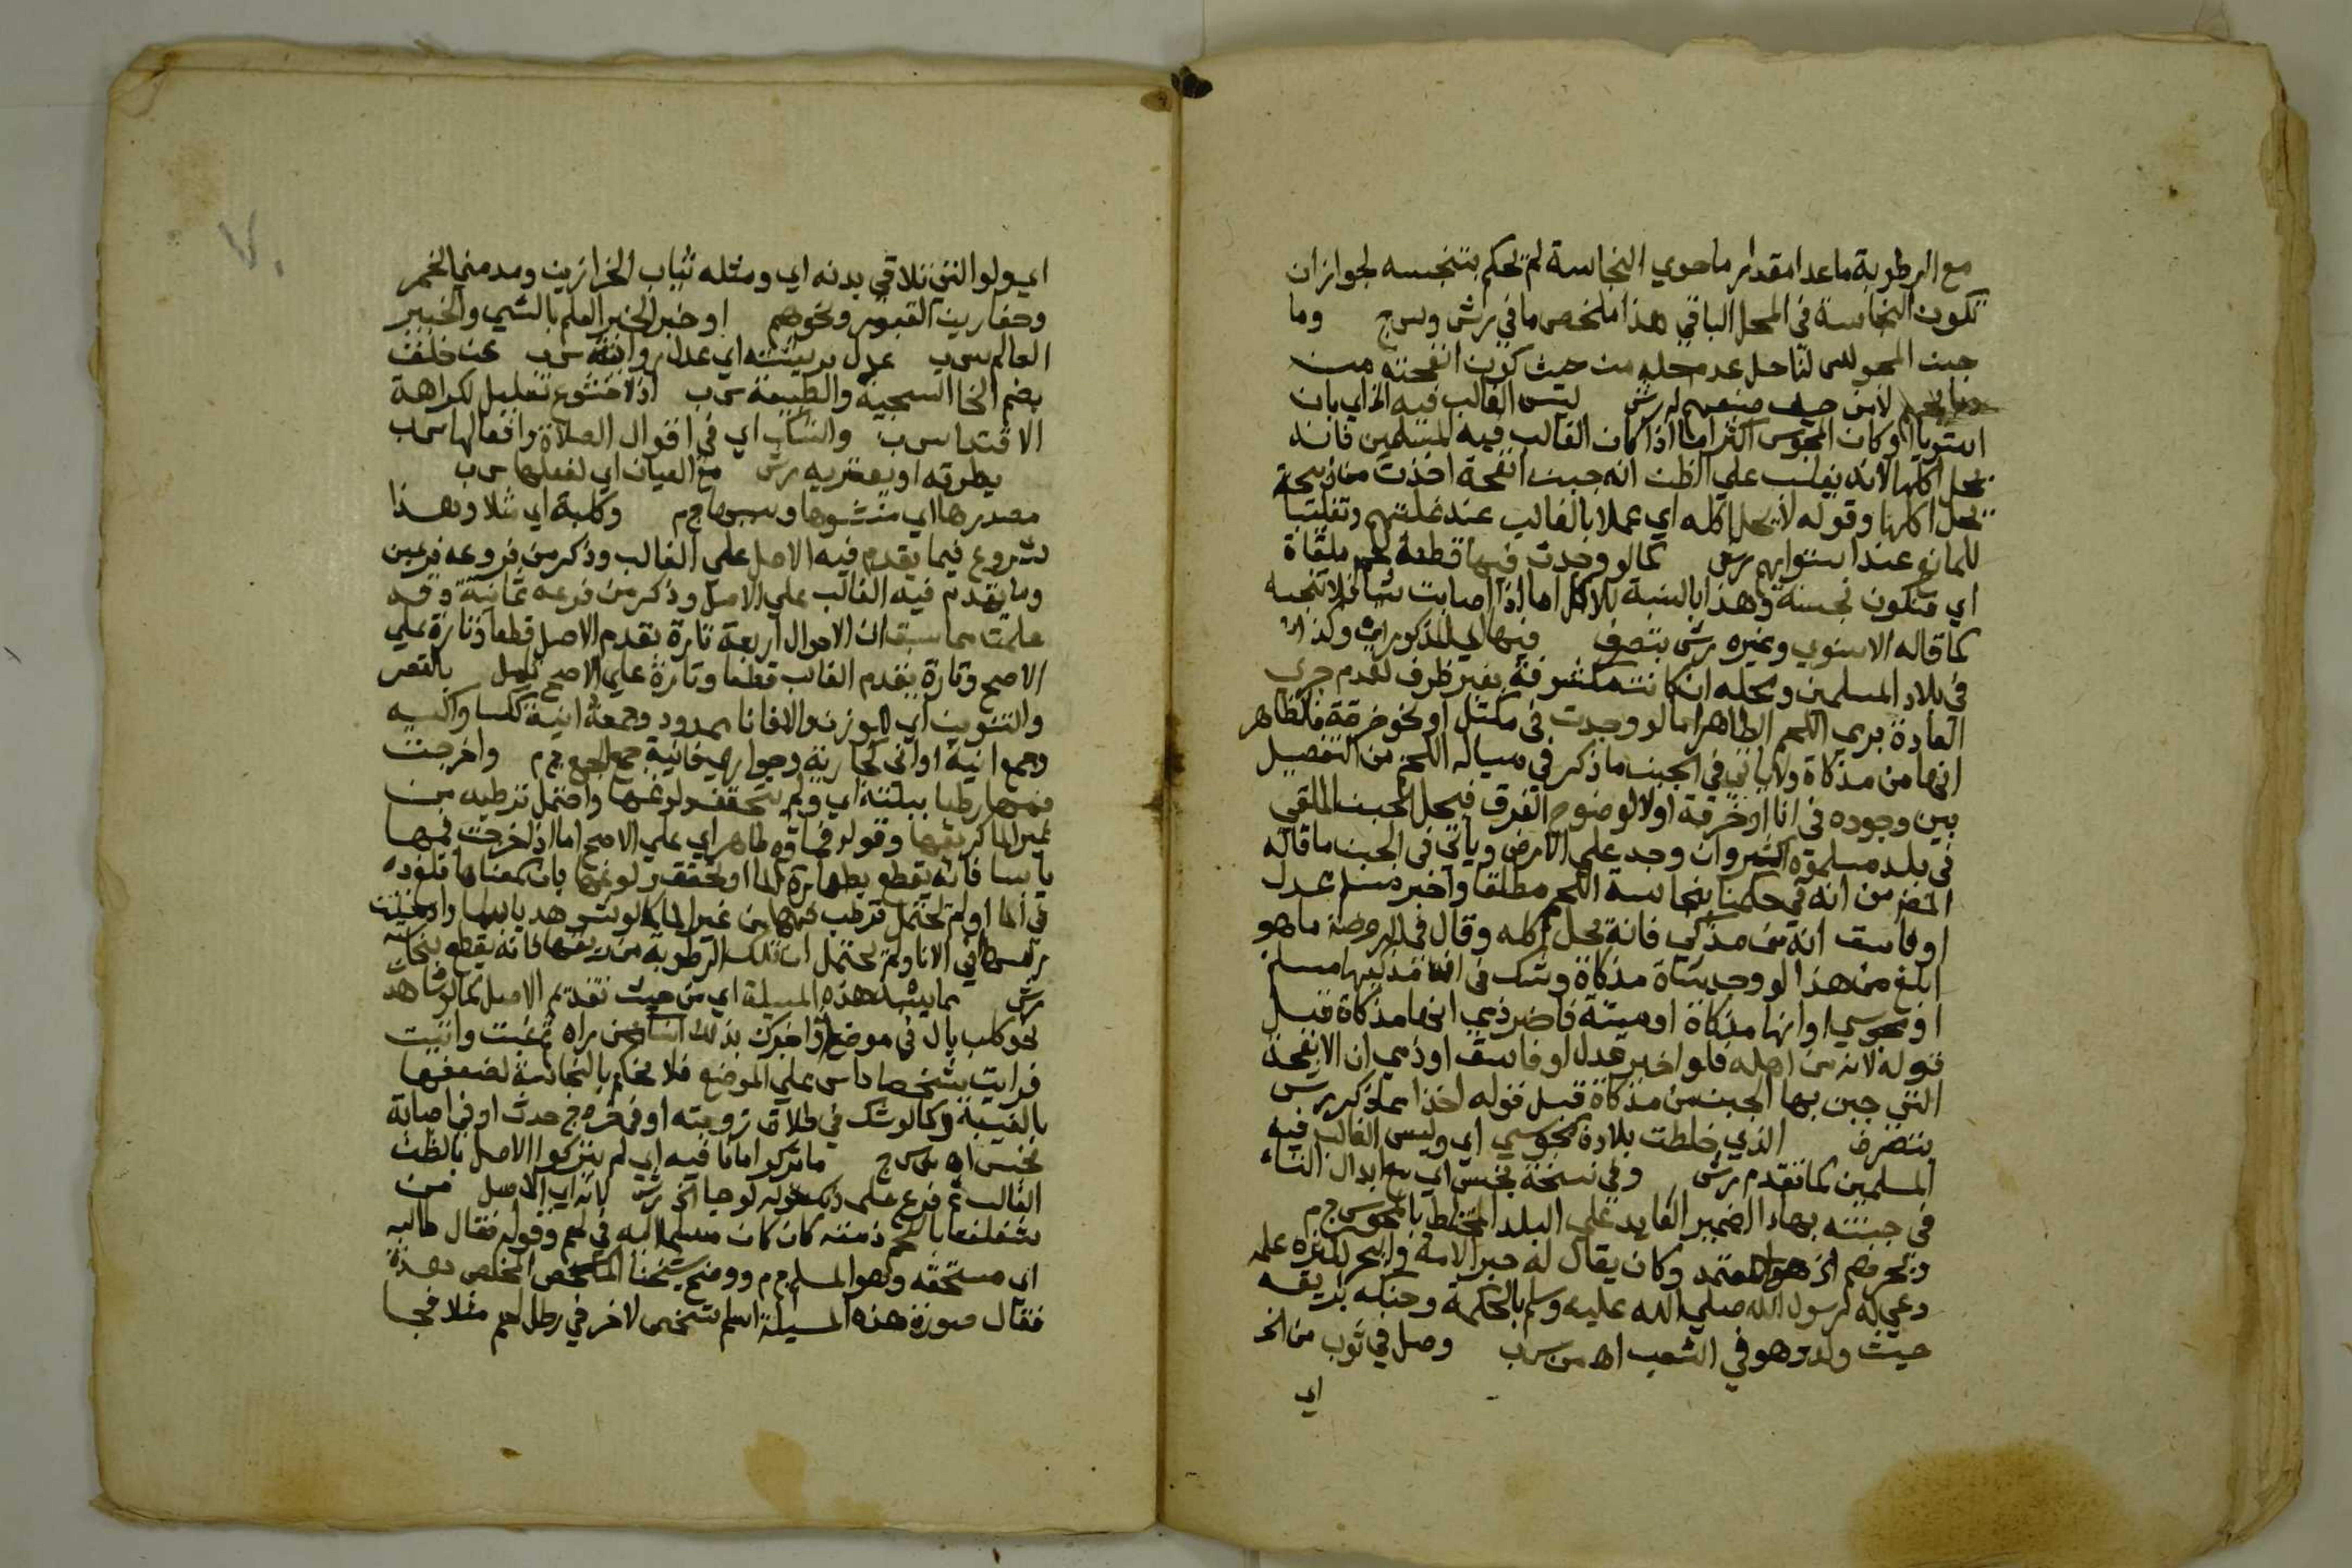 مع الرطوبة ما عدا مقدار ما حوي النجاسة لم نحكم بتنجسه لجواز ان
تكون النجاسة في المحل الباقي هذا ملخص ما في برش وس ج وما
جبن المجوس لنا حل عد محله من حيث كون انفحته من
لابن حيف منعهم له رش ليس الغالب فيه الخ اي بان
استويا او كان المجوس اكثر اما اذا كان الغالب فيه المسلمين فانه
يحل اكلها لانه يغلب علي الظن انه جبن انفحة اخذت من ذبيحة
يحل اكلها وقوله لا يحل اكله اي عملا بالغالب عند غلبتهم وتغليبا
للمانع عند استوايهم برش كما لو وجدت فيها قطعة لحم ملقاة
اي فتكون نجسة وهذا بالنسبة للاكل اما اذا اصابت شيا فلا تنجسه
كما قاله الاسنوي وغيره رش بتصرف فيها اي المذكورات وكذا
في بلاد المسلمين ومحله ان كانت مكشوفة بغير ظرف لعدم جري
العادة برمي اللحم الطاهر اما لو وجدت في مكتل او نحو خرقة فالظاهر
انها من مذكاة ولا ياتي في الجبن ما ذكر في مسالة اللحم من التفصيل
بين وجوده في انا او خرقة اولا لوضوح الفرق فيحل الجبن الملقي
في بلد مسلموه اكثر وان وجد علي الارض وياتي في الجبن ما قاله
من انه لو حكمنا بنجاسة اللحم مطلقا واخبر مسلم عدل
او فاسق انه من مذكي فانه يحل اكله وقال في الروضة ما هو
ابلغ من هذا لو وجد شاة مذكاة وشك في ان مذكيها مسلم
او مجوسي او انها مذكاة او ميتة فاخبر ذمي انها مذكاة قبل
قوله لانه من اهله فلو اخبر عدل او فاسق او ذمي ان الانفحة
التي جبن بها الجبن من مذكاة قبل قوله اخذا مما ذكر برس
بتصرف الذي خلطت بلاده مجوسي اي وليس الغالب فيه
المسلمين كما تقدم برش وفي نسخة بخس اي مع ابدال التاء
في جبنته بهاء الضمير العايد علي البلد المختلط بالمجوس ج م
وبحر فهم الخ هو المعتمد وكان يقال له حبر الامة والبحر لغزره علمه
دعي له رسول الله صلي الله عليه وسلم بالحكمة وحنكه بريقه
حيث ولد وهو في الشعب اه من س ب وصل في ثوب من الخ
اي
اي ولو التي تلاقي بدنه اي ومثله ثياب الخرازين ومدمني الخمر
وحفارين القبور ونحوهم او خبر الخبر العلم بالشي والخبير
العالم س ب عدل بريبته اي عدل رواية س ب عن خلف
بضم الخا السجية والطبيعة س ب اذ لا خشوع تعليل لكراهة
الاقتدا س ب والشاب اي في اقوال الصلاة وافعالها س ب
يطرقه او بعض به رش مع العيان اي لفعلها س ب
مصدرها اي منشوها وسببها ج م وكلبة اي مثلا وهذا
شروع فيما يقدم فيه الاصل علي الغالب وذكر من فروعه فرعين
وما يقدم فيه الغالب علي الاصل وذكر من فروعه ثمانية وقد
علمت مما سبق ان الاحوال اربعة تارة يقدم الاصل قطعا وتارة علي
الاصح وتارة يقدم الغالب قطعا وتارة علي الاصح بالقصر
والتنوين اي لا فانا ممدود وجمعه انية ككسا واكسيه
وجمع انية اواني كجارية وجوار فهي جمع الجمع ج م واخرجت
فمها رطبا ببلته اي ولم يتحقق ولوغها واحتمل ترطيبه من
غير الما كريقها وقوله فماوه طاهر اي علي الاصح اما اذا خرجت فمها
يابسا فانه يقطع بطهارة الما او تحقق ولوغها بان سمعناها تلغو ده
في الما او لم يحتمل ترطب فمها من غير الما كما لو شوهد يابسا وادخلت
راسها في الانا ولم يحتمل ان تلك الرطوبة من ريقها فانه يقطع بنجاسته
رش مما يشبه هذه المسيلة اي من حيث تقديم الاصل كما لو شاهد
نحو كلب بال في موضع واخبرك بذلك انسان من راه ثم غبت واتيت
فرايت شخصا داس علي الموضع فلا نحكم بالنجاسة لضعفها
بالغيبة وكما لو شك في طلاق زوجته او في خروج حدث او في اصابة
نجس اه س ج ما يذكر امانا فيه اي لم يتركوا الاصل بالظن
الغالب ثم فرع علي ذلك قوله لو جا الخ رش بانه اي الاصل من
شغلها باللحم ذمته كان كان مسلم اليه في لحم وقوله فقال طالبه
اي مستحقه وهو المسلم ج م ووضح شيخنا الملخص المخلص بهذه
فقال صورة هذه المسيلة اسلم شخص لاخر في رطل لحم مثلا فجا